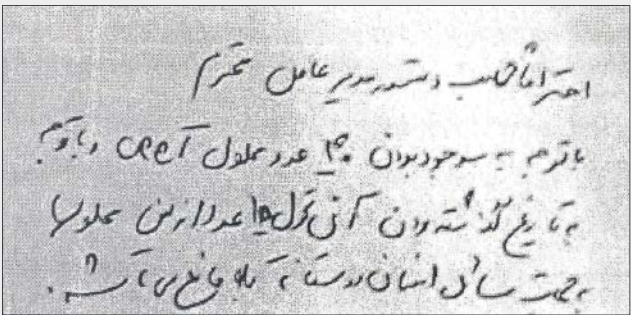 احتراماً حسب دستور مدیر عامل محترم
باتوجه به موجود بودن ۴۰ عدد محلول و باتوجه
به تاریخ گذشته بودن آنی ۱۵ عدد از این محلولها
به جهت مسائل انسان دوستانه بلامانع می باشد.